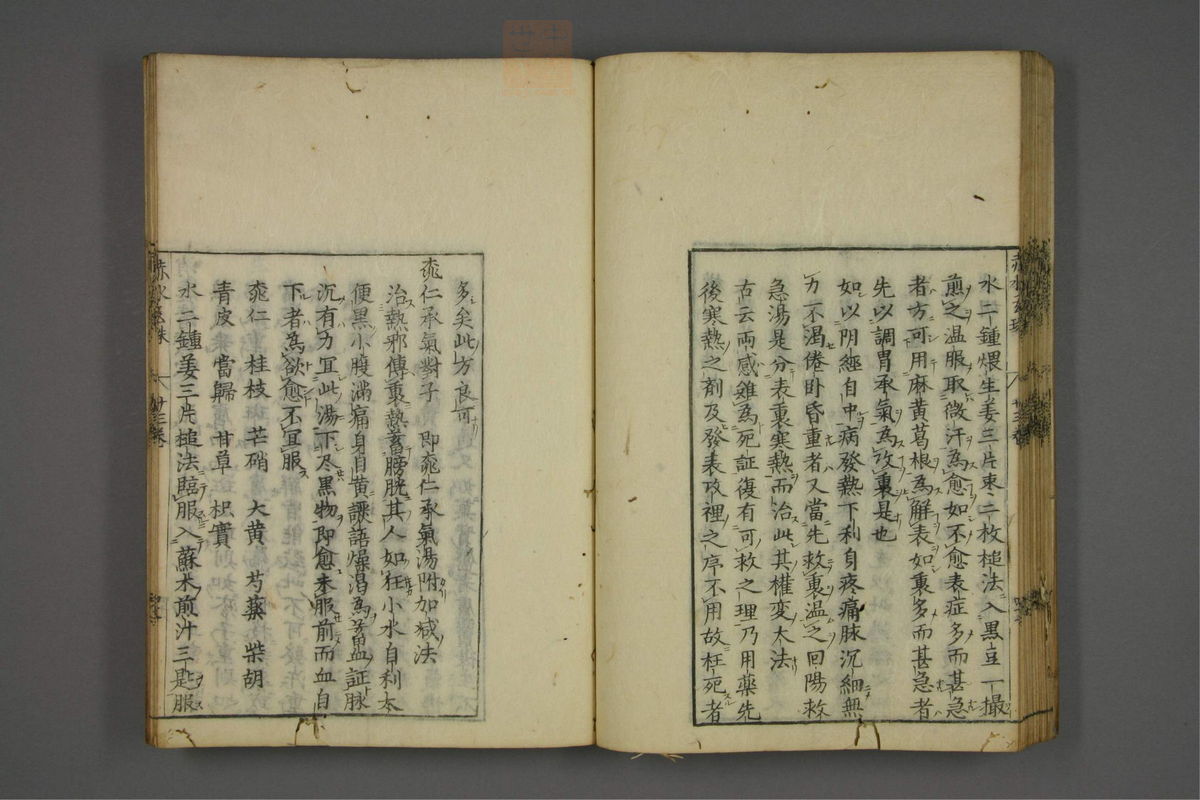 水二鍾煨生姜三片束二枚槌法入黒豆一撮
煎之温服取微汗為愈如不愈表症多而甚急
者方可用麻黄葛根為解表如裏多而甚急者
先以調胃承氣為攻裏是也
如以阴經自中病發熱下利自疼痛脉沉細無
力不渴倦卧昏重者又當先救裏温之回陽救
急湯是分表裏寒熱而治此其權変大法
古云両感雖為死証復有可救之理乃用薬先
後寒熱之剤及發表攻裡之序不用故枉死者
多矣此方良可
桃仁承氣對子 即桃仁承氣湯附加减法
治熱邪傳裏熱蓄膀胱其人如狂小水自利大
便黒小腹满痛身自黄譫語燥渇為蓄血証脉
沉有力冝此湯下尽黒物即愈未服前而血自
下者為欲愈不冝服
桃仁 桂枝 芒硝 大黄 芍薬 柴胡
青皮 當歸 甘草 枳實
水二鍾姜三片槌法臨服入蘇木煎汁三匙服